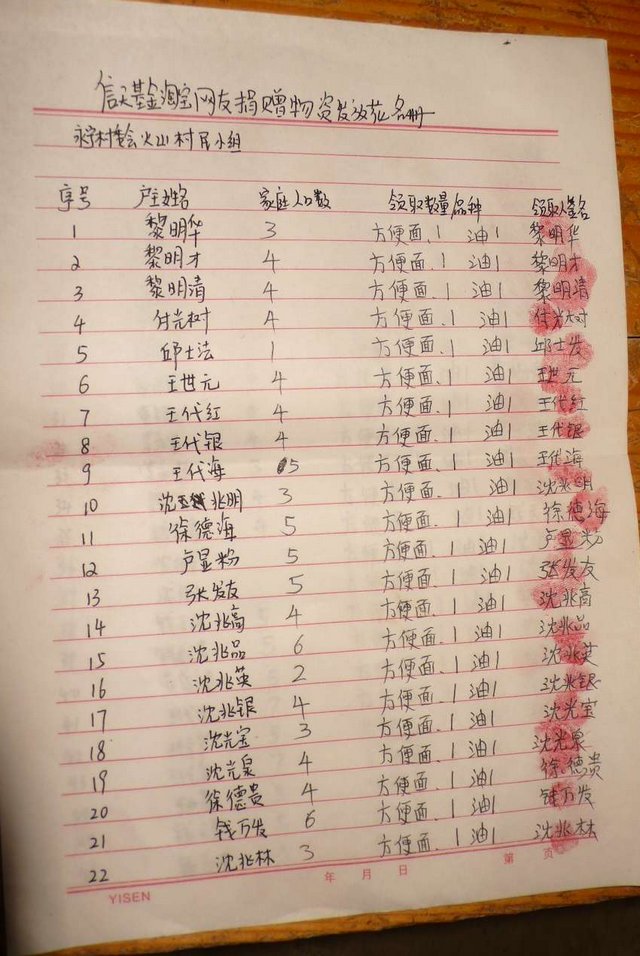 信天基金淘宝网友捐赠物资发放花名册
永宁村委会火山村民小组
序号 户主姓名 家庭人口数 领取数量品种 领取人签名
1 黎明华 3 方便面.1 油1 黎明华
2 黎明才 4 方便面.1 油1 黎明才
3 黎明清 4 方便面.1 油1 黎明清
4 付光树 4 方便面.1 油1 付光树
5 邱士法 1 方便面.1 油1 邱士发
6 王世元 4 方便面.1 油1 王世元
7 王代红 4 方便面.1 油1 王代红
8 王代银 4 方便面.1 油1 王代银
9 王代海 5 方便面.1 油1 王代海
10 沈兆明 3 方便面.1 油1 沈兆明
11 徐德海 5 方便面.1 油1 徐德海
12 卢显粉 5 方便面.1 油1 卢显粉
13 张发友 5 方便面.1 油1 张发友
14 沈兆高 4 方便面.1 油1 沈兆高
15 沈兆品 6 方便面.1 油1 沈兆品
16 沈兆英 2 方便面.1 油1 沈兆英
17 沈兆银 4 方便面.1 油1 沈兆银
18 沈光宝 3 方便面.1 油1 沈光宝
19 沈光泉 4 方便面.1 油1 沈光泉
20 徐德贵 4 方便面.1 油1 徐德贵
21 钱万发 6 方便面.1 油1 钱万发
22 沈兆林 3 方便面.1 油1 沈兆林
年 月 日 第 页
YISEN